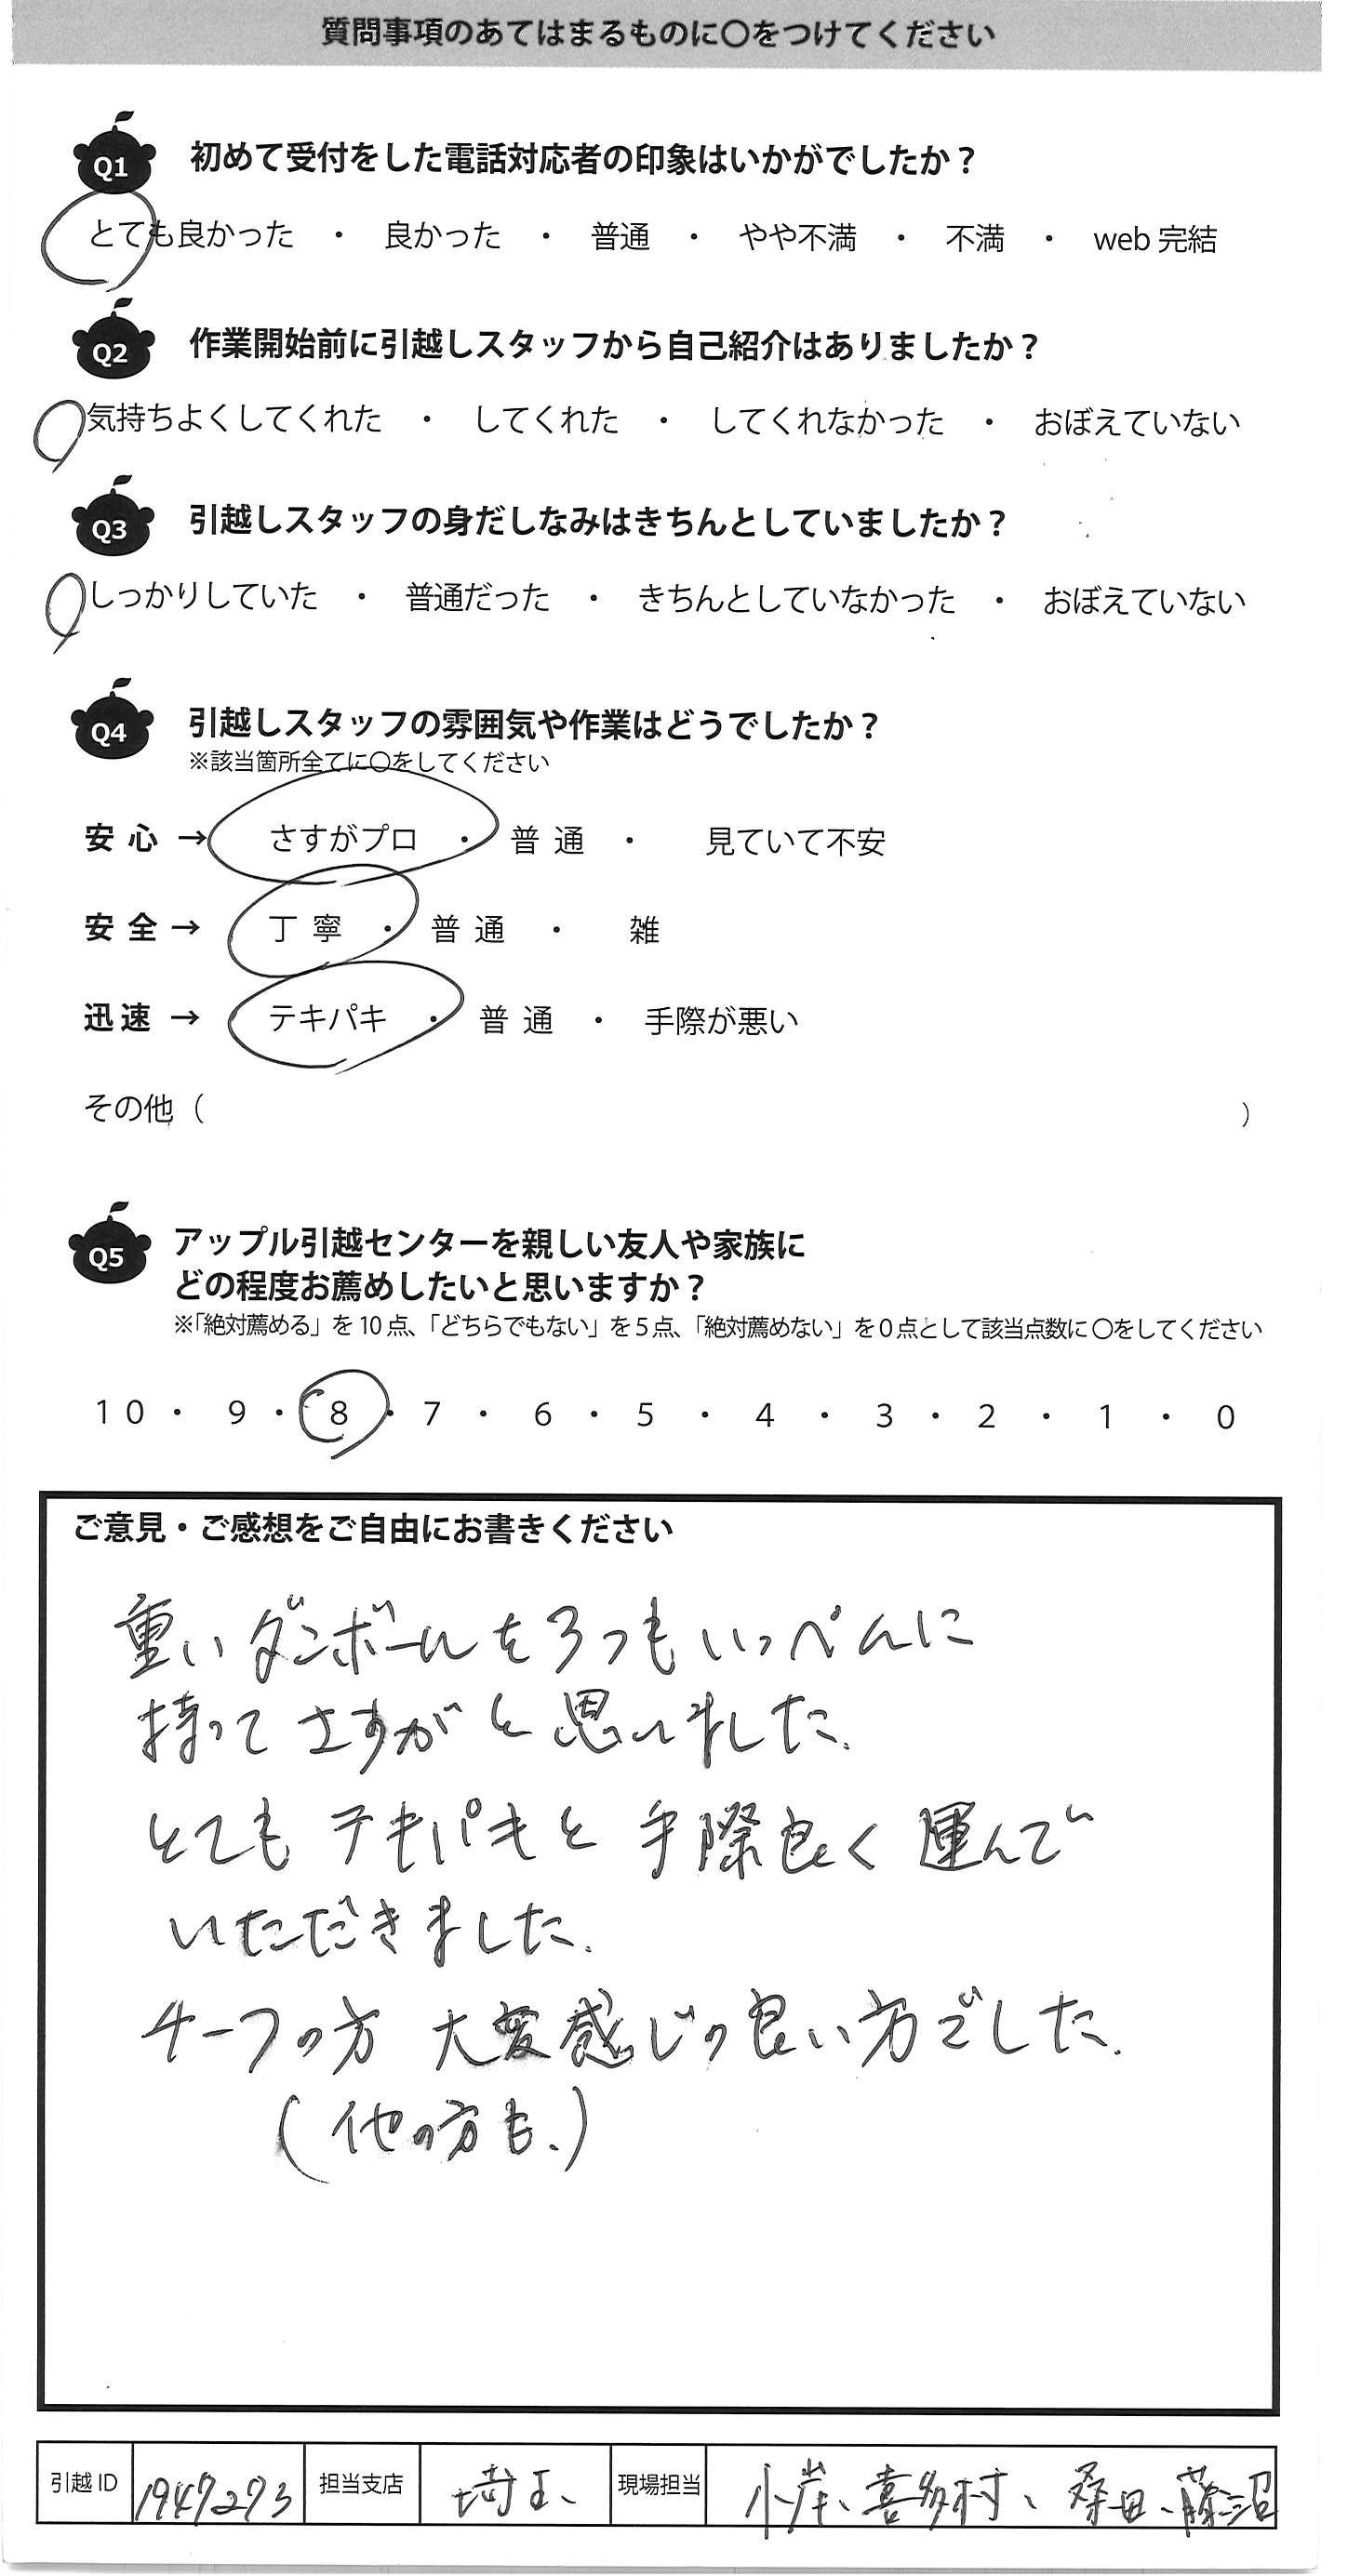 質問事項のあてはまるものに〇をつけてください
Q1 初めて受付をした電話対応者の印象はいかがでしたか？
とても良かった ・ 良かった ・ 普通 ・ やや不満 ・ 不満 ・ web 完結
Q2 作業開始前に引越しスタッフから自己紹介はありましたか？
気持ちよくしてくれた ・ してくれた ・ してくれなかった ・ おぼえていない
Q3 引越しスタッフの身だしなみはきちんとしていましたか？
しっかりしていた ・ 普通だった ・ きちんとしていなかった ・ おぼえていない
Q4 引越しスタッフの雰囲気や作業はどうでしたか？
※該当箇所全てに〇をしてください
安心 → さすがプロ ・ 普通 ・ 見ていて不安
安全 → 丁寧 ・ 普通 ・ 雑
迅速 → テキパキ ・ 普通 ・ 手際が悪い
その他（ ）
Q5 アップル引越センターを親しい友人や家族に
どの程度お薦めしたいと思いますか？
※「絶対薦める」を10点、「どちらでもない」を5点、「絶対薦めない」を0点として該当点数に〇をしてください
10 ・ 9 ・ 8 ・ 7 ・ 6 ・ 5 ・ 4 ・ 3 ・ 2 ・ 1 ・ 0
ご意見・ご感想をご自由にお書きください
重いダンボールを3つもいっぺんに
持ってさすがと思いました.
とてもテキパキと手際良く運んで
いただきました.
チーフの方 大変感じの良い方でした.
(他の方も.)
引越ID 1947273 担当支店 埼玉、 現場担当 小岸、喜多村、桑田、藤沼